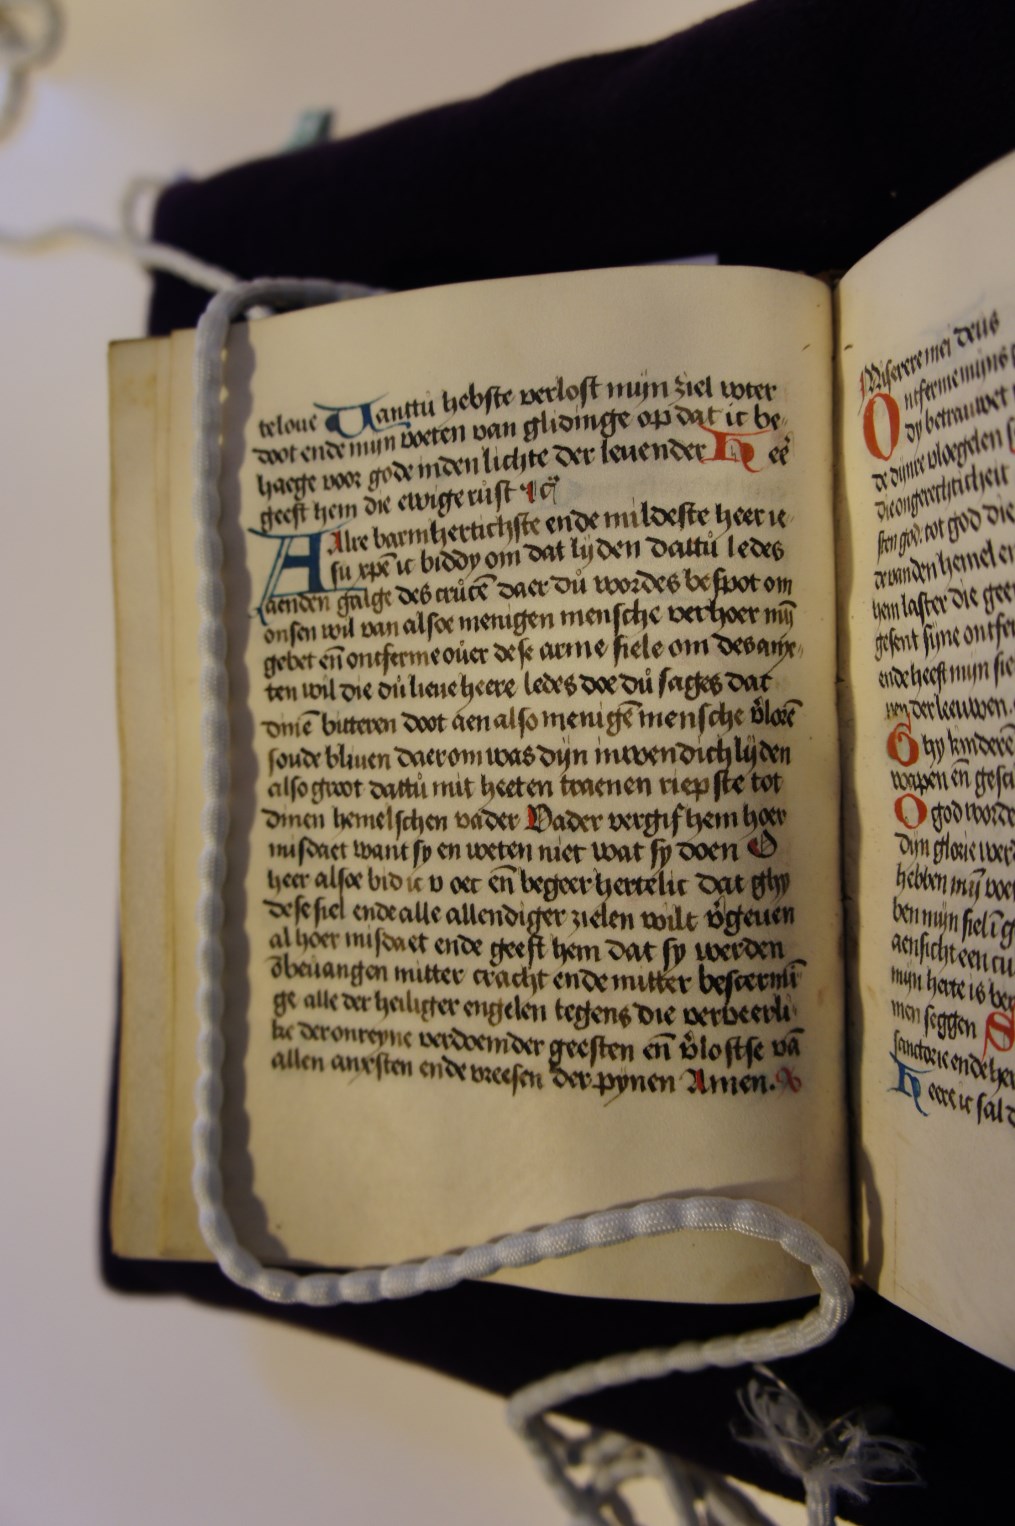 teloue Wanttu hebste verlost mijn ziel wter
doot ende mijn voeten van glidinge op dat ic be
haege voor gode inden lichte der leuender Hee
geeft hem die ewige rust
Alre barmhertichste ende mildeste heer ie
su xpē ic biddy om dat lijden dattu ledes
aenden galge des crucē daer du wordes bespot om
onsen wil van alsoe menigen mensche verhoer mij
gebet eñ ontferme ouer dese arme siele om des anx
ten wil die du lieue heere ledes doe du sages dat
dinē bitteren doot aen also menigē mensche v̄lorē
soude bliuen daerom was dijn inwendich lijden
also groot dattu mit heeten traenen riepste tot
dinen hemelschen vader Vader vergif hem hoer
misdaet want sy en weten niet wat sy doen O
heer alsoe bid ic v oec eñ begeer hertelic dat ghy
dese siel ende alle allendiger zielen wilt v̄geuen
al hoer misdaet ende geeft hem dat sy werden
ōbeuangen mitter cracht ende mitter bescermī
ge alle der heiliger engelen tegens die verveerli
ke der onreyne verdoemder geesten eñ v̄lostse vā
allen anxsten ende vreesen der pynen Amen.
Miserere mei deus
Ontferme mijns
dy betrauwet
de dijnre vloegelen
die ongerechticheit
sten god, tot god die
de vanden hemel en
hem laster die
gesent sijne
ende heeft mijn sie
der leeuwen.
O kinderē
wapen eñ
O god
dijn glorie
hebben mij voe
ben mijn siel
aensicht een
mijn herte is
men seggen S
ende
Heere ic sal